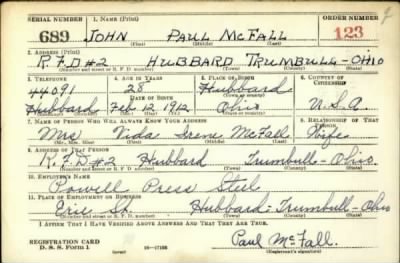 SERIAL NUMBER 1. NAME (Print) ORDER NUMBER
689 JOHN PAUL McFALL 123
(First) (Middle) (Last)
2. ADDRESS (Print)
R.F.D #2 HUBBARD TRUMBULL - OHIO
(Number and street or R. F. D. number) (Town) (County) (State)
3. TELEPHONE 4. AGE IN YEARS 5. PLACE OF BIRTH 6. COUNTRY OF CITIZENSHIP
44091 28 Hubbard
DATE OF BIRTH (Town or county)
Hubbard Feb 12 1912 Ohio U.S.A.
(Exchange) (Number) (Mo.) (Day) (Yr.) (State or country)
7. NAME OF PERSON WHO WILL ALWAYS KNOW YOUR ADDRESS 8. RELATIONSHIP OF THAT PERSON
Mrs Vida Irene McFall Wife
(Mr., Mrs., Miss) (First) (Middle) (Last)
9. ADDRESS OF THAT PERSON
R.F.D #2 Hubbard Trumbull - Ohio.
(Number and street or R. F. D. number) (Town) (County) (State)
10. EMPLOYER'S NAME
Powell Press Steel
11. PLACE OF EMPLOYMENT OR BUSINESS
Erie St. Hubbard - Trumbull - Ohio
(Number and street or R. F. D. number) (Town) (County) (State)
I AFFIRM THAT I HAVE VERIFIED ABOVE ANSWERS AND THAT THEY ARE TRUE.
REGISTRATION CARD
D. S. S. Form 1 (over) 16-17105 Paul McFall.
(Registrant's signature)